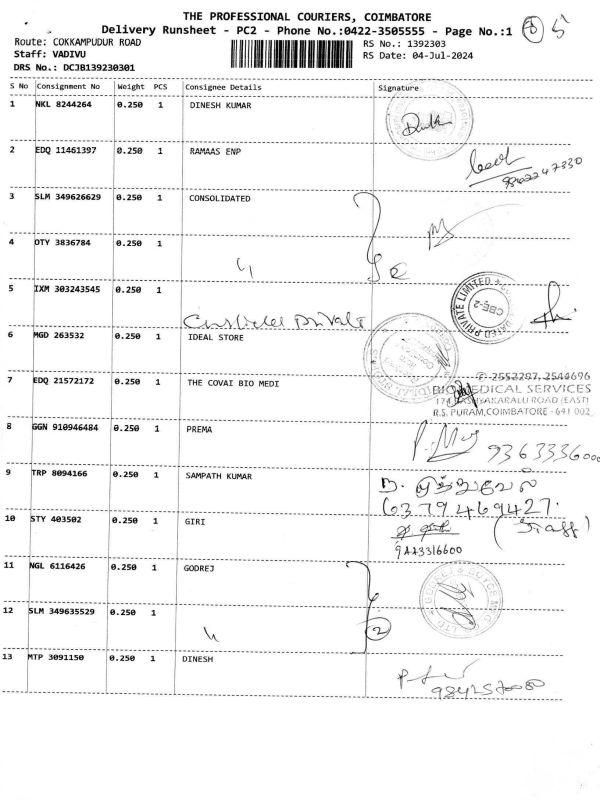 THE PROFESSIONAL COURIERS, COIMBATORE
Delivery Runsheet - PC2 - Phone No.:0422-3505555 - Page No.:1 5
Route: COKKAMPUDUR ROAD RS No.: 1392303
Staff: VADIVU RS Date: 04-Jul-2024
DRS No.: DCJB139230301
S No Consignment No Weight PCS Consignee Details Signature
1 NKL 8244264 0.250 1 DINESH KUMAR
2 EDQ 11461397 0.250 1 RAMAAS ENP
9842247330
3 SLM 349626629 0.250 1 CONSOLIDATED
4 OTY 3836784 0.250 1
5 IXM 303243545 0.250 1
PRIVATE LIMITED
CBE-2
6 MGD 263532 0.250 1 IDEAL STORE
7 EDQ 21572172 0.250 1 THE COVAI BIO MEDI
BIOMEDICAL SERVICES
R.S. PURAM, COIMBATORE - 641 002
8 GGN 910946484 0.250 1 PREMA
9363336000
9 TRP 8094166 0.250 1 SAMPATH KUMAR
6379469427
10 STY 403502 0.250 1 GIRI
9443316600
11 NGL 6116426 0.250 1 GODREJ
GODREJ & BOYCE MFG
LTD
12 SLM 349635529 0.250 1
2
13 MTP 3091150 0.250 1 DINESH